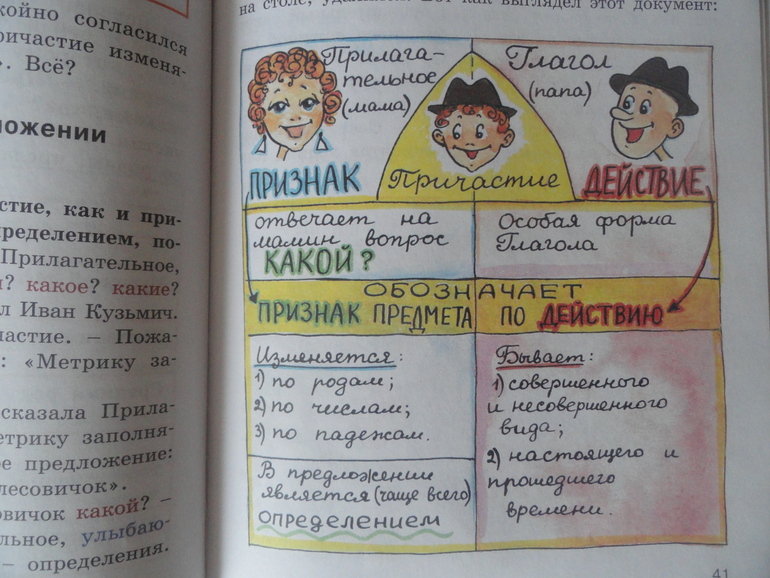 койно согласился
ричастие изменя-
». Всё?
ложении
стие, как и при-
пределением, по-
Прилагательное,
? какое? какие?
л Иван Кузьмич.
частие. – Пожа-
: «Метрику за-
сказала Прила-
етрику заполня-
ое предложение:
лесовичок».
овичок какой? –
льное, улыбаю-
– определения.
на столе, Вот как выглядел этот документ:
Прилага-
тельное
(мама)
Глагол
(папа)
ПРИЗНАК
Причастие
ДЕЙСТВИЕ
отвечает на
мамин вопрос
КАКОЙ?
Особая форма
Глагола
ОБОЗНАЧАЕТ
ПРИЗНАК ПРЕДМЕТА ПО ДЕЙСТВИЮ
Изменяется:
1) по родам;
2) по числам;
3) по падежам.
В предложении
является (чаще всего)
ОПРЕДЕЛЕНИЕМ
Бывает:
1) совершенного
и несовершенного
вида;
2) настоящего и
прошедшего
времени.
41